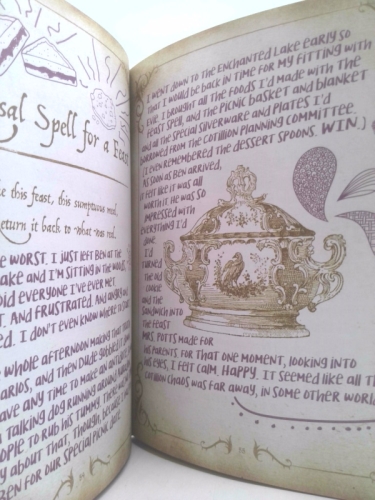 sal Spell for a Feast
this feast, this sumptuous meal,
eturn it back to what was real.
E WORST. I JUST LEFT BEN AT THE
AKE AND I'M SITTING IN THE WOODS.
DID EVERYONE I'VE EVER MET.
T. AND FRUSTRATED. AND ANGRY AND
ED. I DON'T EVEN KNOW WHERE TO START
WHOLE AFTERNOON MAKING THAT
ARIOS, AND THEN DUDE GOBBLED
AVE ANY TIME TO MAKE AN
TALKING DOG RUNNING AROUND
OPLE TO RUB HIS TUMMY. THERE
Y ABOUT THAT, THOUGH, BECAUSE
EN FOR OUR SPECIAL PICNIC
I WENT DOWN TO THE ENCHANTED LAKE EARLY SO
THAT I WOULD BE BACK IN TIME FOR MY FITTING WITH
EVIE. I BROUGHT ALL THE FOODS I'D MADE WITH THE
FEAST SPELL, AND THE PICNIC BASKET AND BLANKET
AND ALL THE SPECIAL SILVERWARE AND PLATES I'D
BORROWED FROM THE COTILLION PLANNING COMMITTEE.
(I EVEN REMEMBERED THE DESSERT SPOONS. WIN.)
AS SOON AS BEN ARRIVED,
IT FELT LIKE IT WAS ALL
WORTH IT. HE WAS SO
IMPRESSED WITH
EVERYTHING I'D
DONE.
I'D
TURNED
THE OLD
COOKIE
AND THE
SANDWICH INTO
THE FEAST
MRS. POTTS MADE FOR
HIS PARENTS. FOR THAT ONE MOMENT, LOOKING INTO
HIS EYES, I FELT CALM, HAPPY. IT SEEMED LIKE ALL THE
COTILLION CHAOS WAS FAR AWAY, IN SOME OTHER WORLD